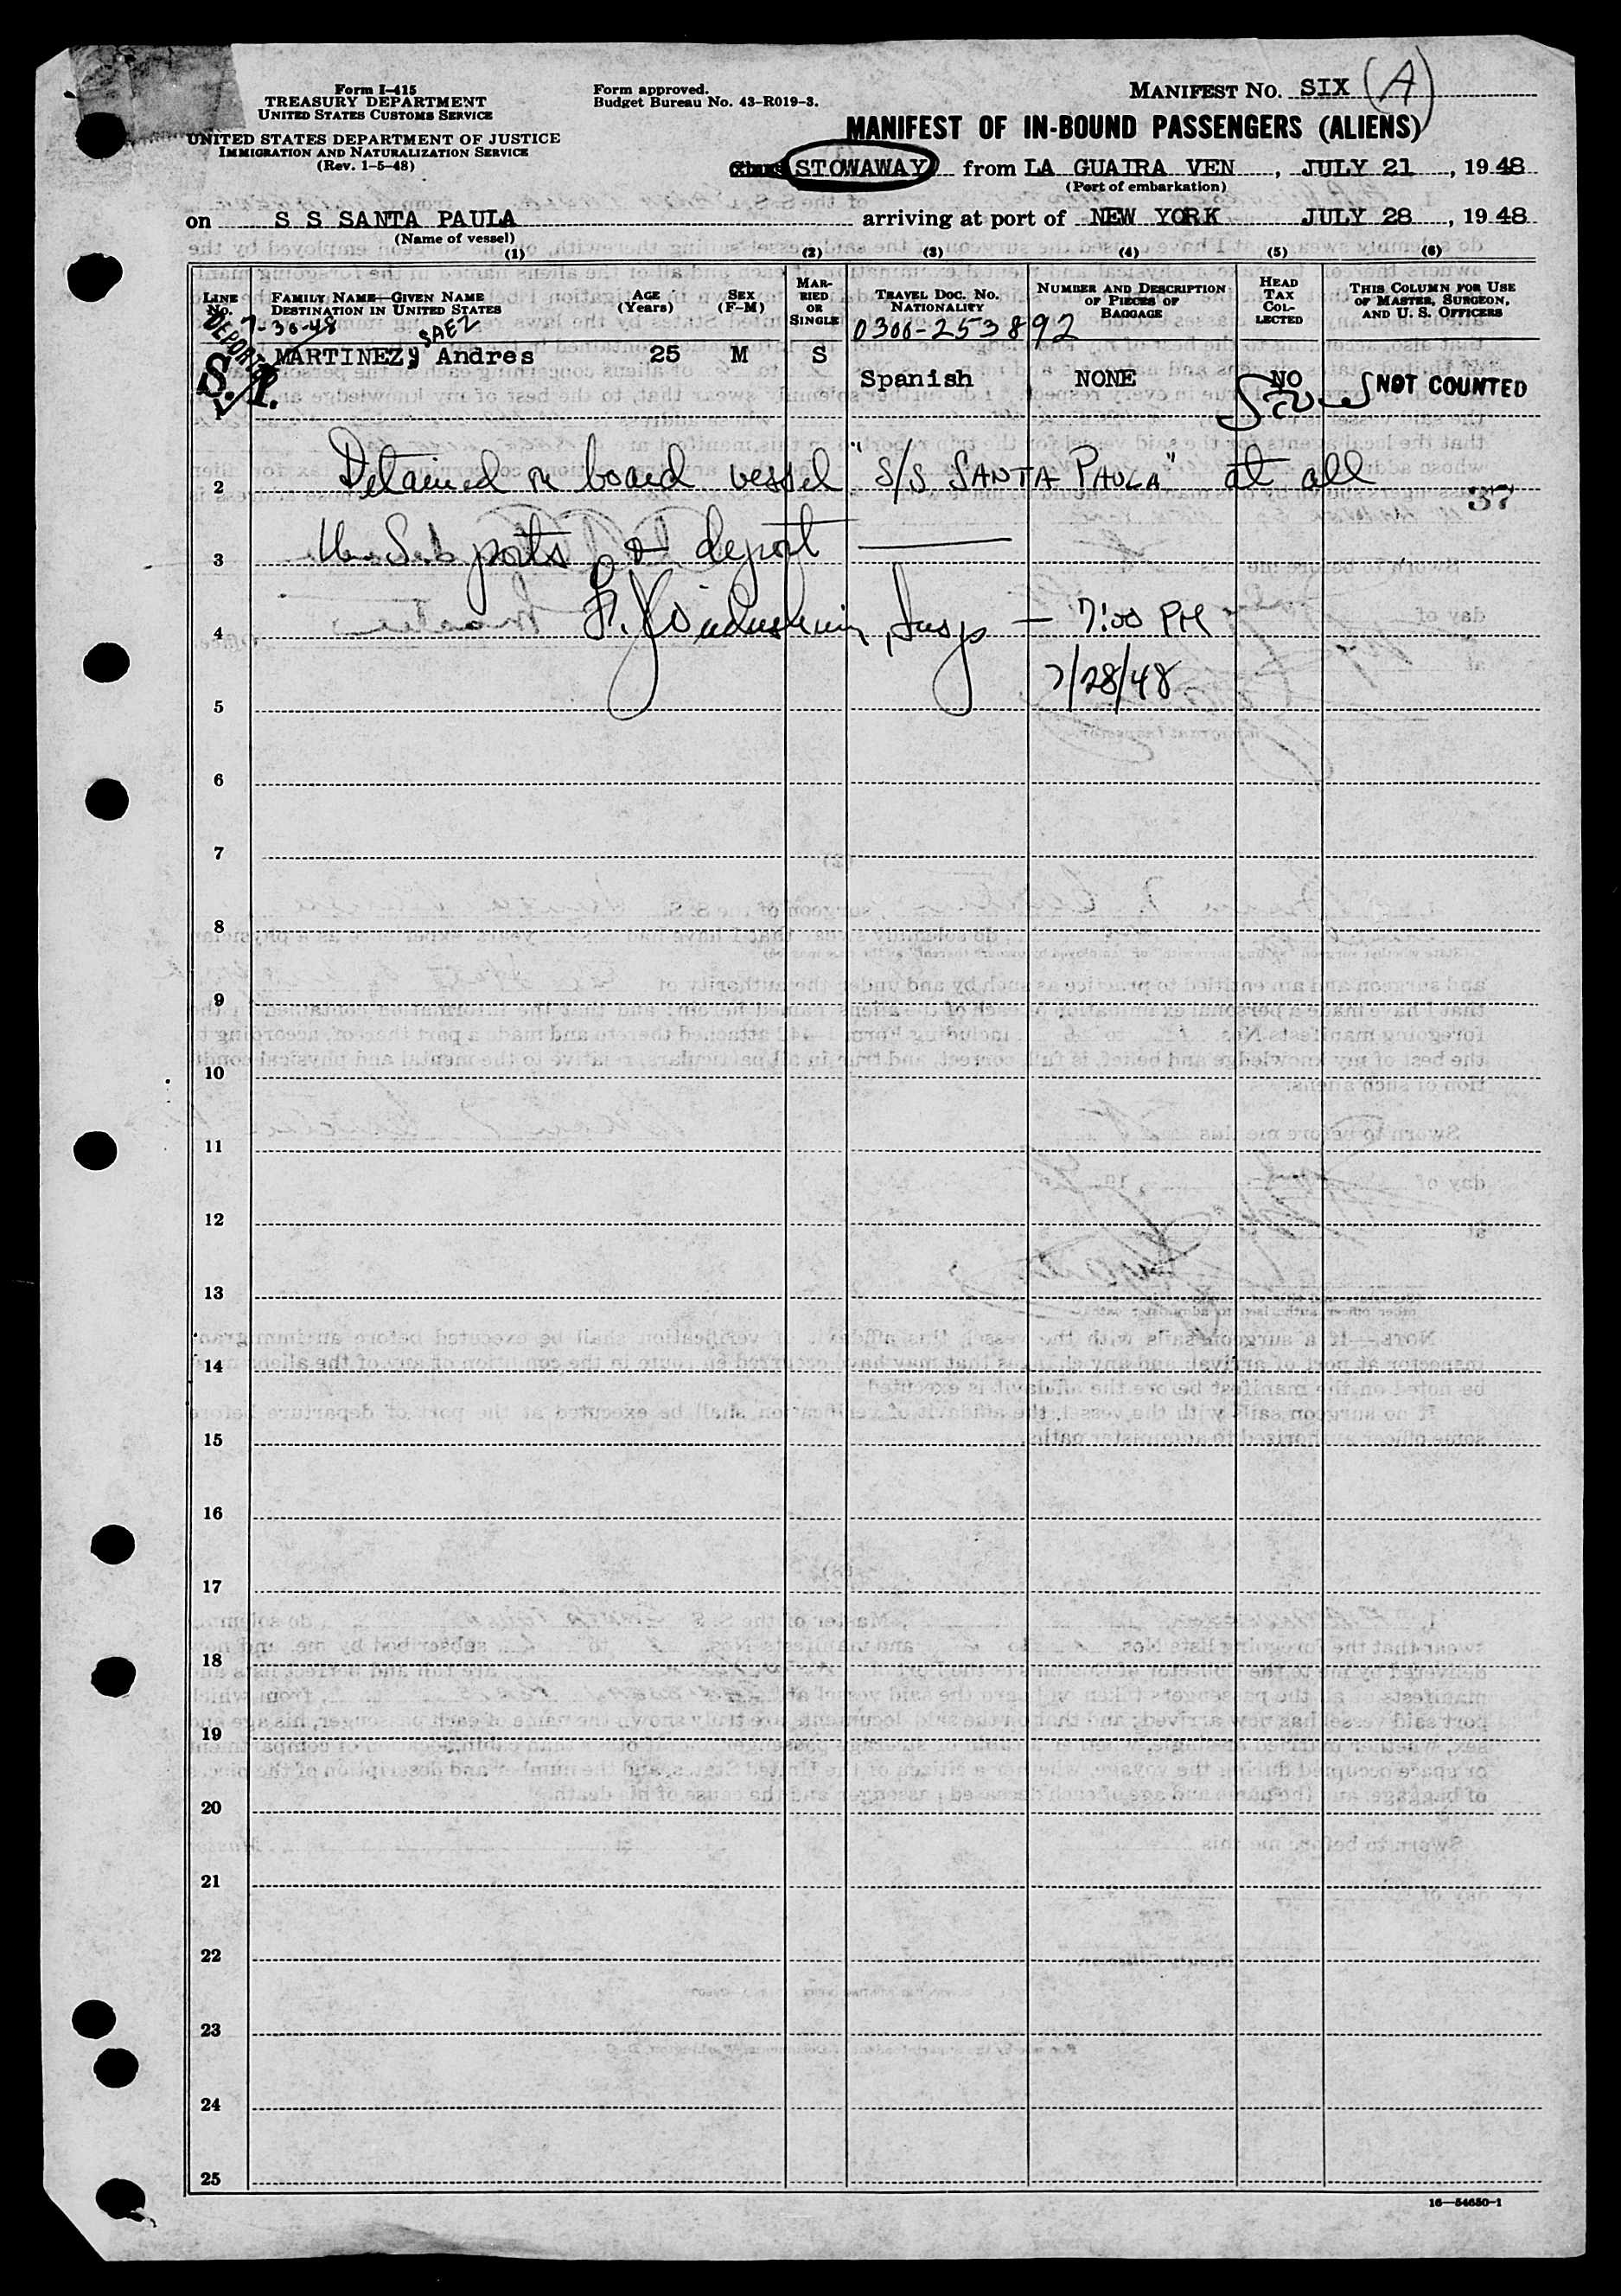 Form I-415
TREASURY DEPARTMENT
UNITED STATES CUSTOMS SERVICE
UNITED STATES DEPARTMENT OF JUSTICE
IMMIGRATION AND NATURALIZATION SERVICE
(Rev. 1-5-48)
Form approved.
Budget Bureau No. 43-R019-3.
MANIFEST NO. SIX (A)
MANIFEST OF IN-BOUND PASSENGERS (ALIENS)
Class STOWAWAY from LA GUAIRA VEN, JULY 21, 1948
(Port of embarkation)
on S S SANTA PAULA arriving at port of NEW YORK JULY 28, 1948
(Name of vessel)
(1) (2) (3) (4) (5) (6)
LINE NO.
FAMILY NAME—GIVEN NAME
DESTINATION IN UNITED STATES
AGE
(Years)
SEX
(F-M)
MARRIED OR SINGLE
TRAVEL DOC. NO.
NATIONALITY
NUMBER AND DESCRIPTION OF PIECES OF BAGGAGE
HEAD TAX COLLECTED
THIS COLUMN FOR USE OF MASTER, SURGEON, AND U. S. OFFICERS
DEPORTED 7-30-48
SAEZ
0300-253892
MARTINEZ y Andres 25 M S
S.I.
Spanish NONE NO NOT COUNTED
1
2 Detained on board vessel "S/S SANTA PAULA" at all
37
3 U.S. ports & deport
4 Insp — 7:00 PM
7/28/48
5
6
7
8
9
10
11
12
13
14
15
16
17
18
19
20
21
22
23
24
25
16—54650-1